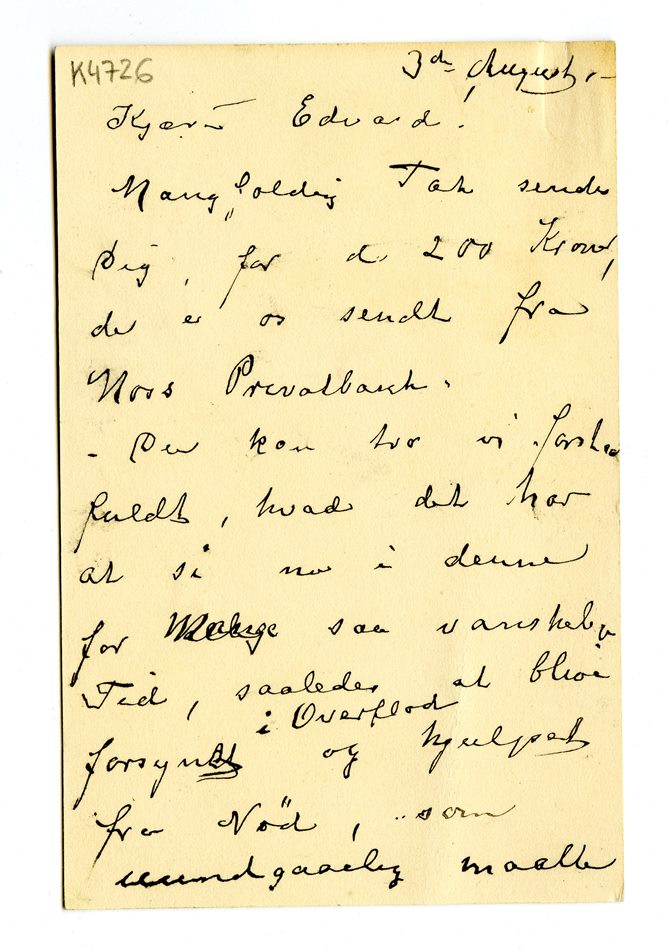 K4726
3die August. –
Kjære Edvard!
Mangfoldig Tak sendes
Dig, for de 200 Kroner,
der er os sendt fra
Moss Privatbank.
- Du kan tro vi forstaar
fuldt, hvad det har
at si nu i denne
for Mange saa vanskelige
Tid, saaledes at blive
i Overflod
forsynet og hjulpet
fra Nød, som
uundgaaelig maatte